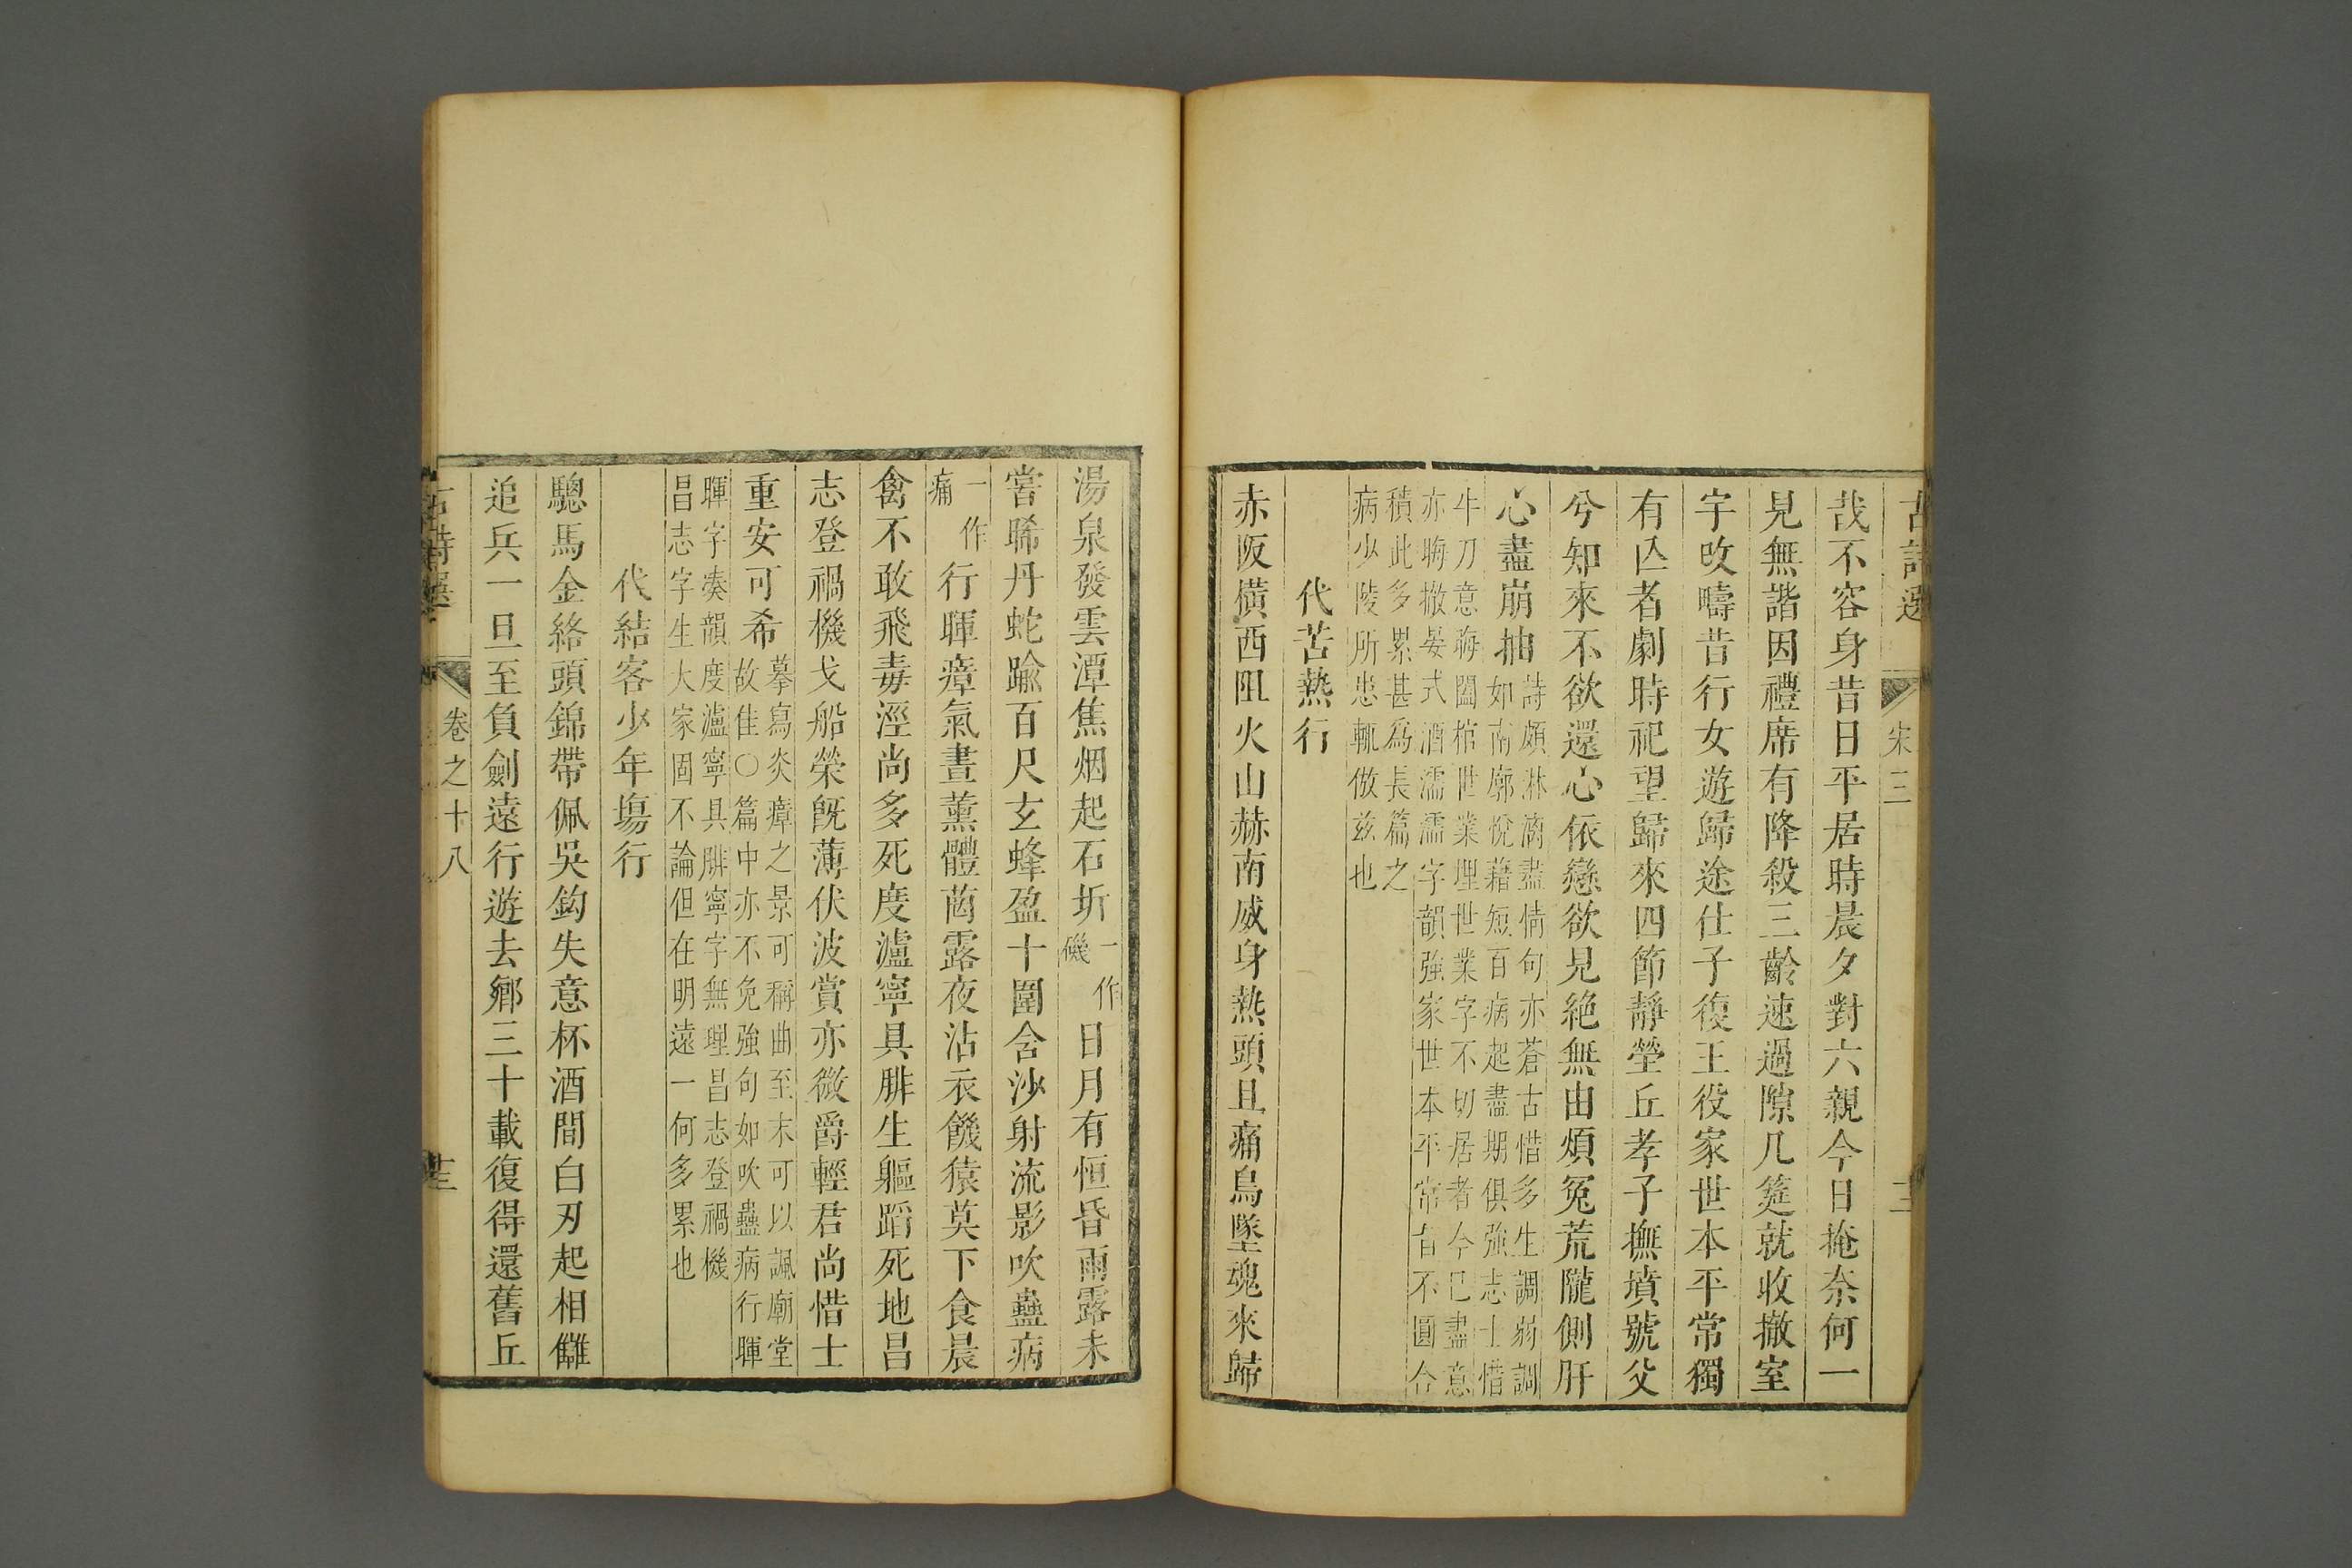 古詩選
宋三
哉不容身昔日平居時晨夕對六親今日掩奈何一
見無諧因禮席有降殺三齡速過隙几筵就收撤室
宇改疇昔行女遊歸途仕子復王役家世本平常獨
有亾者劇時祀望歸來四節靜塋丘孝子撫墳號父
兮知來不欲還心依戀欲見絶無由煩冤荒隴側肝
心盡崩抽
詩頗淋漓盡情句亦蒼古惜多生調弱調
如南廓悅藉短百病起盡期俱強志士惜
牛刀意晦闔棺世業埋世業字不切居者今已盡意
亦晦撤晏式酒濡濡字韻強家世本平常旨不圓合
積此多累甚爲長篇之
病少陵所患輒倣兹也
代苦熱行
赤阪橫西阻火山赫南威身熱頭且痛鳥墜魂來歸
湯泉發雲潭焦烟起石圻
一作
磯
日月有恒昏雨露未
嘗晞丹蛇踰百尺玄蜂盈十圍含沙射流影吹蠱病
一作
痛
行暉瘴氣晝薰體䓘露夜沾衣饑猿莫下食晨
禽不敢飛毒涇尚多死度瀘寧具腓生軀蹈死地昌
志登禍機戈船榮旣薄伏波賞亦微爵輕君尚惜士
重安可希
摹寫炎瘴之景可稱曲至末可以諷廟堂
故佳○篇中亦不免強句如吹蠱病行暉
暉字凑韻度瀘寧具腓寧字無理昌志登禍機
昌志字生大家固不論但在明遠一何多累也
代結客少年塲行
驄馬金絡頭錦帶佩吳鈎失意杯酒間白刃起相讎
追兵一旦至負劍遠行遊去鄉三十載復得還舊丘
古詩選
卷之十八